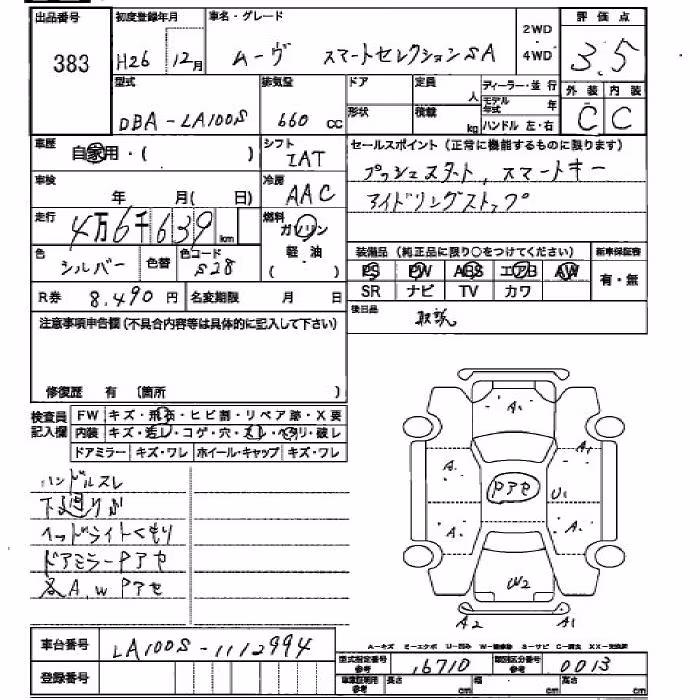 出品番号 初度登録年月 車名・グレード 2WD・4WD 評価点
383 H26 12月 ムーヴ スマートセレクションSA 3.5
型式 排気量 ドア 定員 人 ディーラー・並行 外装 内装
DBA-LA100S 660 cc 形状 積載 kg モデル年式 年 ハンドル 左・右 C C
車歴 自家用・( ) シフト IAT セールスポイント(正常に機能するものに限ります)
プッシュスタート、スマートキー
車検 年 月( 日) 冷房 AAC アイドリングストップ
走行 4万6千639km 燃料 ガソリン 軽・油 ( )
色 シルバー 色替 色コード S28
装備品(純正品に限り○をつけてください) 新車保証書
PS PW ABS エアB AW 有・無
SR ナビ TV カワ
R券 8,490円 名変期限 月 日
後日品 取説
注意事項申告欄(不具合内容等は具体的に記入して下さい)
修復歴 有 (箇所 )
検査員記入欄 FW キズ・飛石・ヒビ割・リペア跡・X要
内装 キズ・汚レ・コゲ・穴・スレ・ヘタリ・破レ
ドアミラー キズ・ワレ ホイール・キャップ キズ・ワレ
ハンドルスレ
下廻りサビ
ヘッドライトくもり
ドアミラーPアセ
各A.W Pアセ
A1
A1
A.
Pアセ
U1
A.
A.
W2
A2 A1
A-キズ E-エクボ U-凹み
車台番号 LA100S-1112994
登録番号
型式指定番号 参考 16710 類別区分番号 参考 0013
車庫証明用 参考 長さ cm 幅 cm 高さ cm